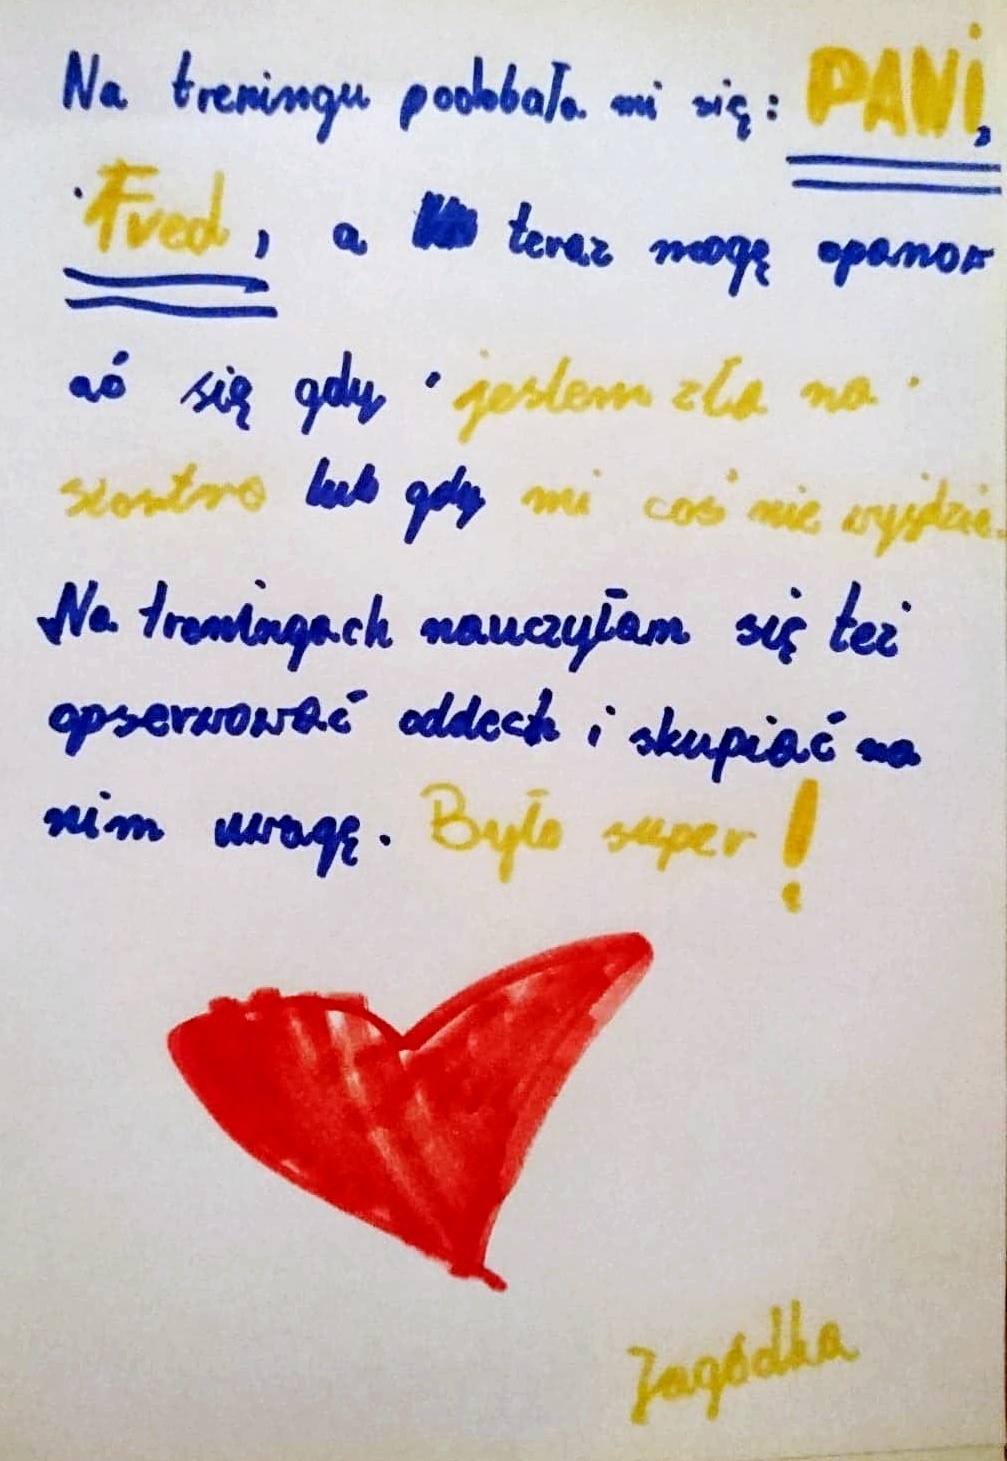 Na treningu podobała mi się: PANI,
Fred, a teraz mogę opanow
ać się gdy jestem zła na
siostrę lub gdy mi coś nie wyjdzie.
Na treningach nauczyłam się też
opserwować oddech i skupiać na
nim uwagę. Było super!
Jagódka